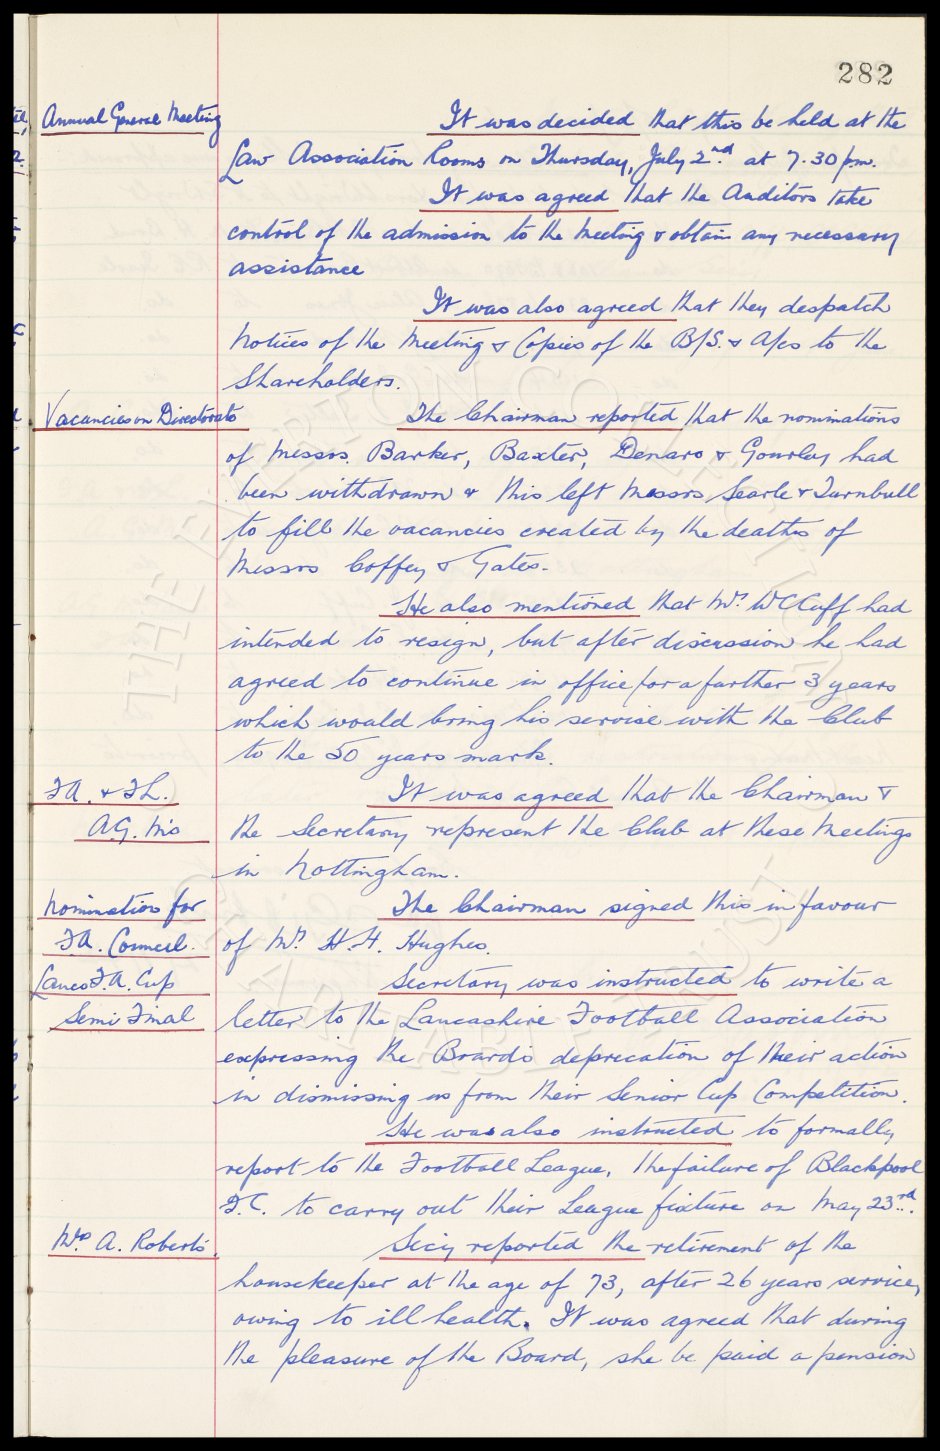 282
Annual General Meeting It was decided that this be held at the
Law Association Rooms on Thursday, July 2nd at 7.30 p.m.
It was agreed that the Auditors take
control of the admission to the Meeting & obtain any necessary
assistance
It was also agreed that they despatch
Notices of the Meeting & Copies of the B/S. & A/cs to the
Shareholders.
Vacancies on Directorate The Chairman reported that the nominations
of Messrs. Barker, Baxter, Denaro & Gourley had
been withdrawn & this left Messrs Searle & Turnbull
to fill the vacancies created by the deaths of
Messrs Coffey & Gates.
He also mentioned that Mr. W C Cuff had
intended to resign, but after discussion he had
agreed to continue in office for a further 3 years
which would bring his service with the Club
to the 50 years mark.
F.A. & F.L. It was agreed that the Chairman &
A.G. M's the Secretary represent the Club at these Meetings
in Nottingham.
Nomination for The Chairman signed this in favour
F.A. Council. of Mr. H.H. Hughes.
Lancs F.A. Cup Secretary was instructed to write a
Semi Final letter to the Lancashire Football Association
expressing the Board's deprecation of their action
in dismissing us from their Senior Cup Competition.
He was also instructed to formally
report to the Football League, the failure of Blackpool
F.C. to carry out their League fixture on May 23rd.
Mrs A. Roberts. Secy reported the retirement of the
housekeeper at the age of 73, after 26 years service,
owing to ill health. It was agreed that during
the pleasure of the Board, she be paid a pension